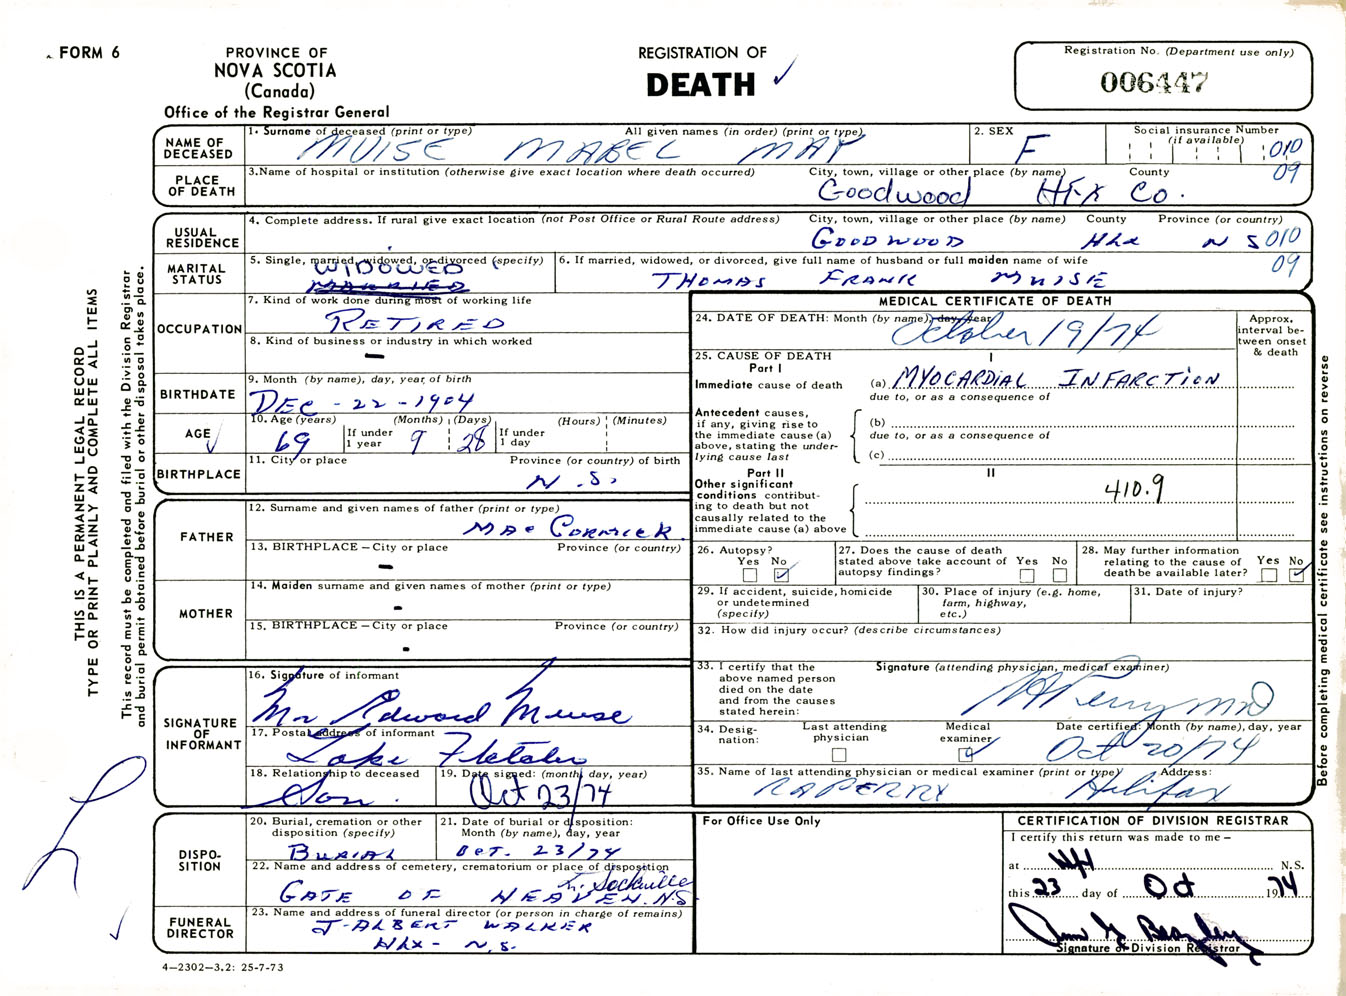 FORM 6
PROVINCE OF
NOVA SCOTIA
(Canada)
Office of the Registrar General
REGISTRATION OF
DEATH
Registration No. (Department use only)
006447
NAME OF
DECEASED
1. Surname of deceased (print or type) All given names (in order) (print or type)
MUISE MABEL MAY
2. SEX
F
Social insurance Number
(if available)
010
09
PLACE
OF DEATH
3. Name of hospital or institution (otherwise give exact location where death occurred) City, town, village or other place (by name) County
Goodwood HFX Co.
USUAL
RESIDENCE
4. Complete address. If rural give exact location (not Post Office or Rural Route address) City, town, village or other place (by name) County Province (or country)
GOODWOOD Hfx N S 010
09
MARITAL
STATUS
5. Single, married, widowed, or divorced (specify)
WIDOWED
MARRIED
6. If married, widowed, or divorced, give full name of husband or full maiden name of wife
THOMAS FRANK MUISE
OCCUPATION
7. Kind of work done during most of working life
RETIRED
8. Kind of business or industry in which worked
-
BIRTHDATE
9. Month (by name), day, year of birth
DEC - 22 - 1904
AGE
10. Age (years) (Months) (Days) (Hours) (Minutes)
If under
1 year
If under
1 day
69 9 28
BIRTHPLACE
11. City or place Province (or country) of birth
N.S.
FATHER
12. Surname and given names of father (print or type)
MacCORMICK
13. BIRTHPLACE — City or place Province (or country)
-
MOTHER
14. Maiden surname and given names of mother (print or type)
-
15. BIRTHPLACE — City or place Province (or country)
-
SIGNATURE
OF
INFORMANT
16. Signature of informant
Mr Edward Muise
17. Postal address of informant
Lake Fletcher
18. Relationship to deceased
Son.
19. Date signed: (month, day, year)
Oct 23/74
DISPO-
SITION
20. Burial, cremation or other
disposition (specify)
BURIAL
21. Date of burial or disposition:
Month (by name), day, year
Oct. 23/74
22. Name and address of cemetery, crematorium or place of disposition
GATE OF HEAVEN. N.S.
Sackville
FUNERAL
DIRECTOR
23. Name and address of funeral director (or person in charge of remains)
J-ALBERT WALKER
Hfx - N.S.
4—2302—3.2: 25-7-73
MEDICAL CERTIFICATE OF DEATH
24. DATE OF DEATH: Month (by name), day, year
October 19/74
Approx.
interval be-
tween onset
& death
25. CAUSE OF DEATH
Part I
I
Immediate cause of death (a) MYOCARDIAL INFARCTION
due to, or as a consequence of
Antecedent causes,
if any, giving rise to
the immediate cause (a)
above, stating the under-
lying cause last
(b)
due to, or as a consequence of
(c)
Part II
II
Other significant
conditions contribut-
ing to death but not
causally related to the
immediate cause (a) above
410.9
26. Autopsy?
Yes No
27. Does the cause of death
stated above take account of
autopsy findings?
Yes No
28. May further information
relating to the cause of
death be available later?
Yes No
29. If accident, suicide, homicide
or undetermined
(specify)
30. Place of injury (e.g. home,
farm, highway,
etc.)
31. Date of injury?
32. How did injury occur? (describe circumstances)
33. I certify that the
above named person
died on the date
and from the causes
stated herein:
Signature (attending physician, medical examiner)
RA Perry MD
34. Desig-
nation:
Last attending
physician
Medical
examiner
Date certified: Month (by name), day, year
Oct 20/74
35. Name of last attending physician or medical examiner (print or type) Address:
RA PERRY Halifax
For Office Use Only
CERTIFICATION OF DIVISION REGISTRAR
I certify this return was made to me —
at Hfx N.S.
this 23 day of Oct 1974
Signature of Division Registrar
THIS IS A PERMANENT LEGAL RECORD
TYPE OR PRINT PLAINLY AND COMPLETE ALL ITEMS
This record must be completed and filed with the Division Registrar
and burial permit obtained before burial or other disposal takes place.
Before completing medical certificate see instructions on reverse